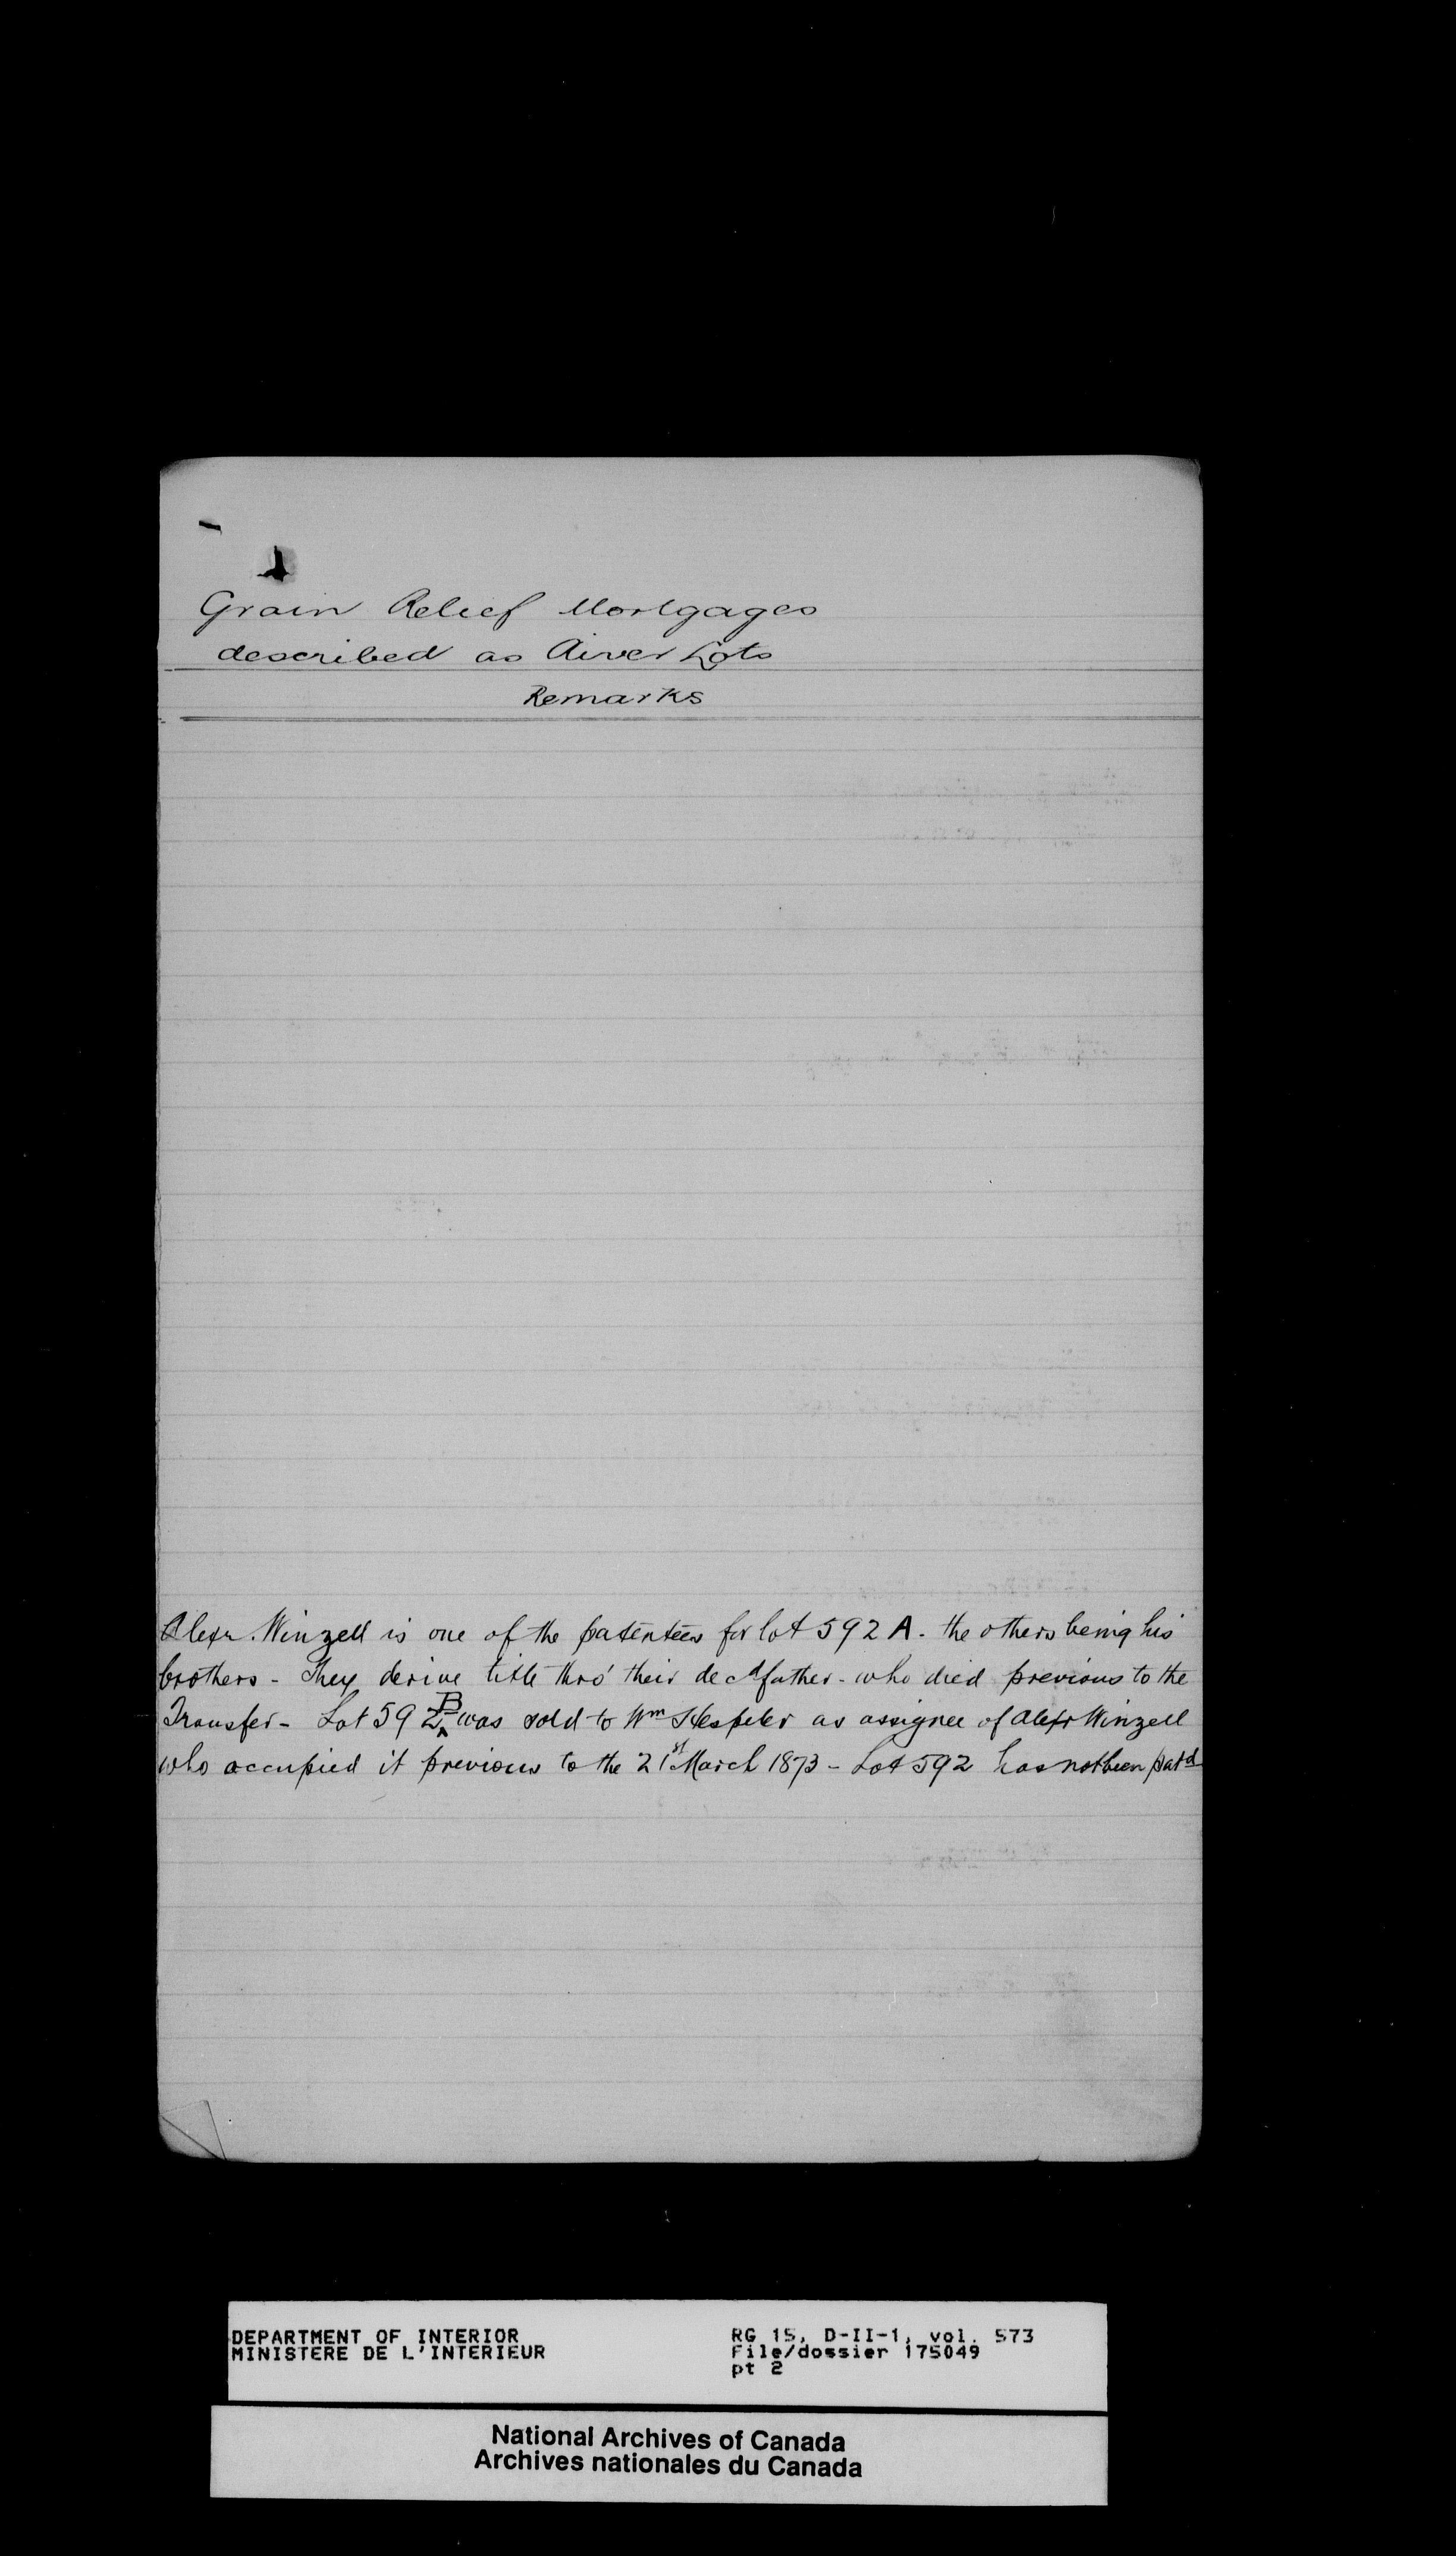 Grain Relief Mortgages
described as River Lots
Remarks
Alexr. Winzell is one of the patentees for lot 592 A - the others being his
brothers - They derive title thro' their decd father - who died previous to the
Transfer - Lot 592 B was sold to Wm Hespeler as assignee of Alexr Winzell
who occupied it previous to the 21st March 1873 - Lot 592 has not been patd
DEPARTMENT OF INTERIOR
MINISTERE DE L'INTERIEUR
RG 15, D-II-1, vol. 573
File/dossier 175049
pt 2
National Archives of Canada
Archives nationales du Canada